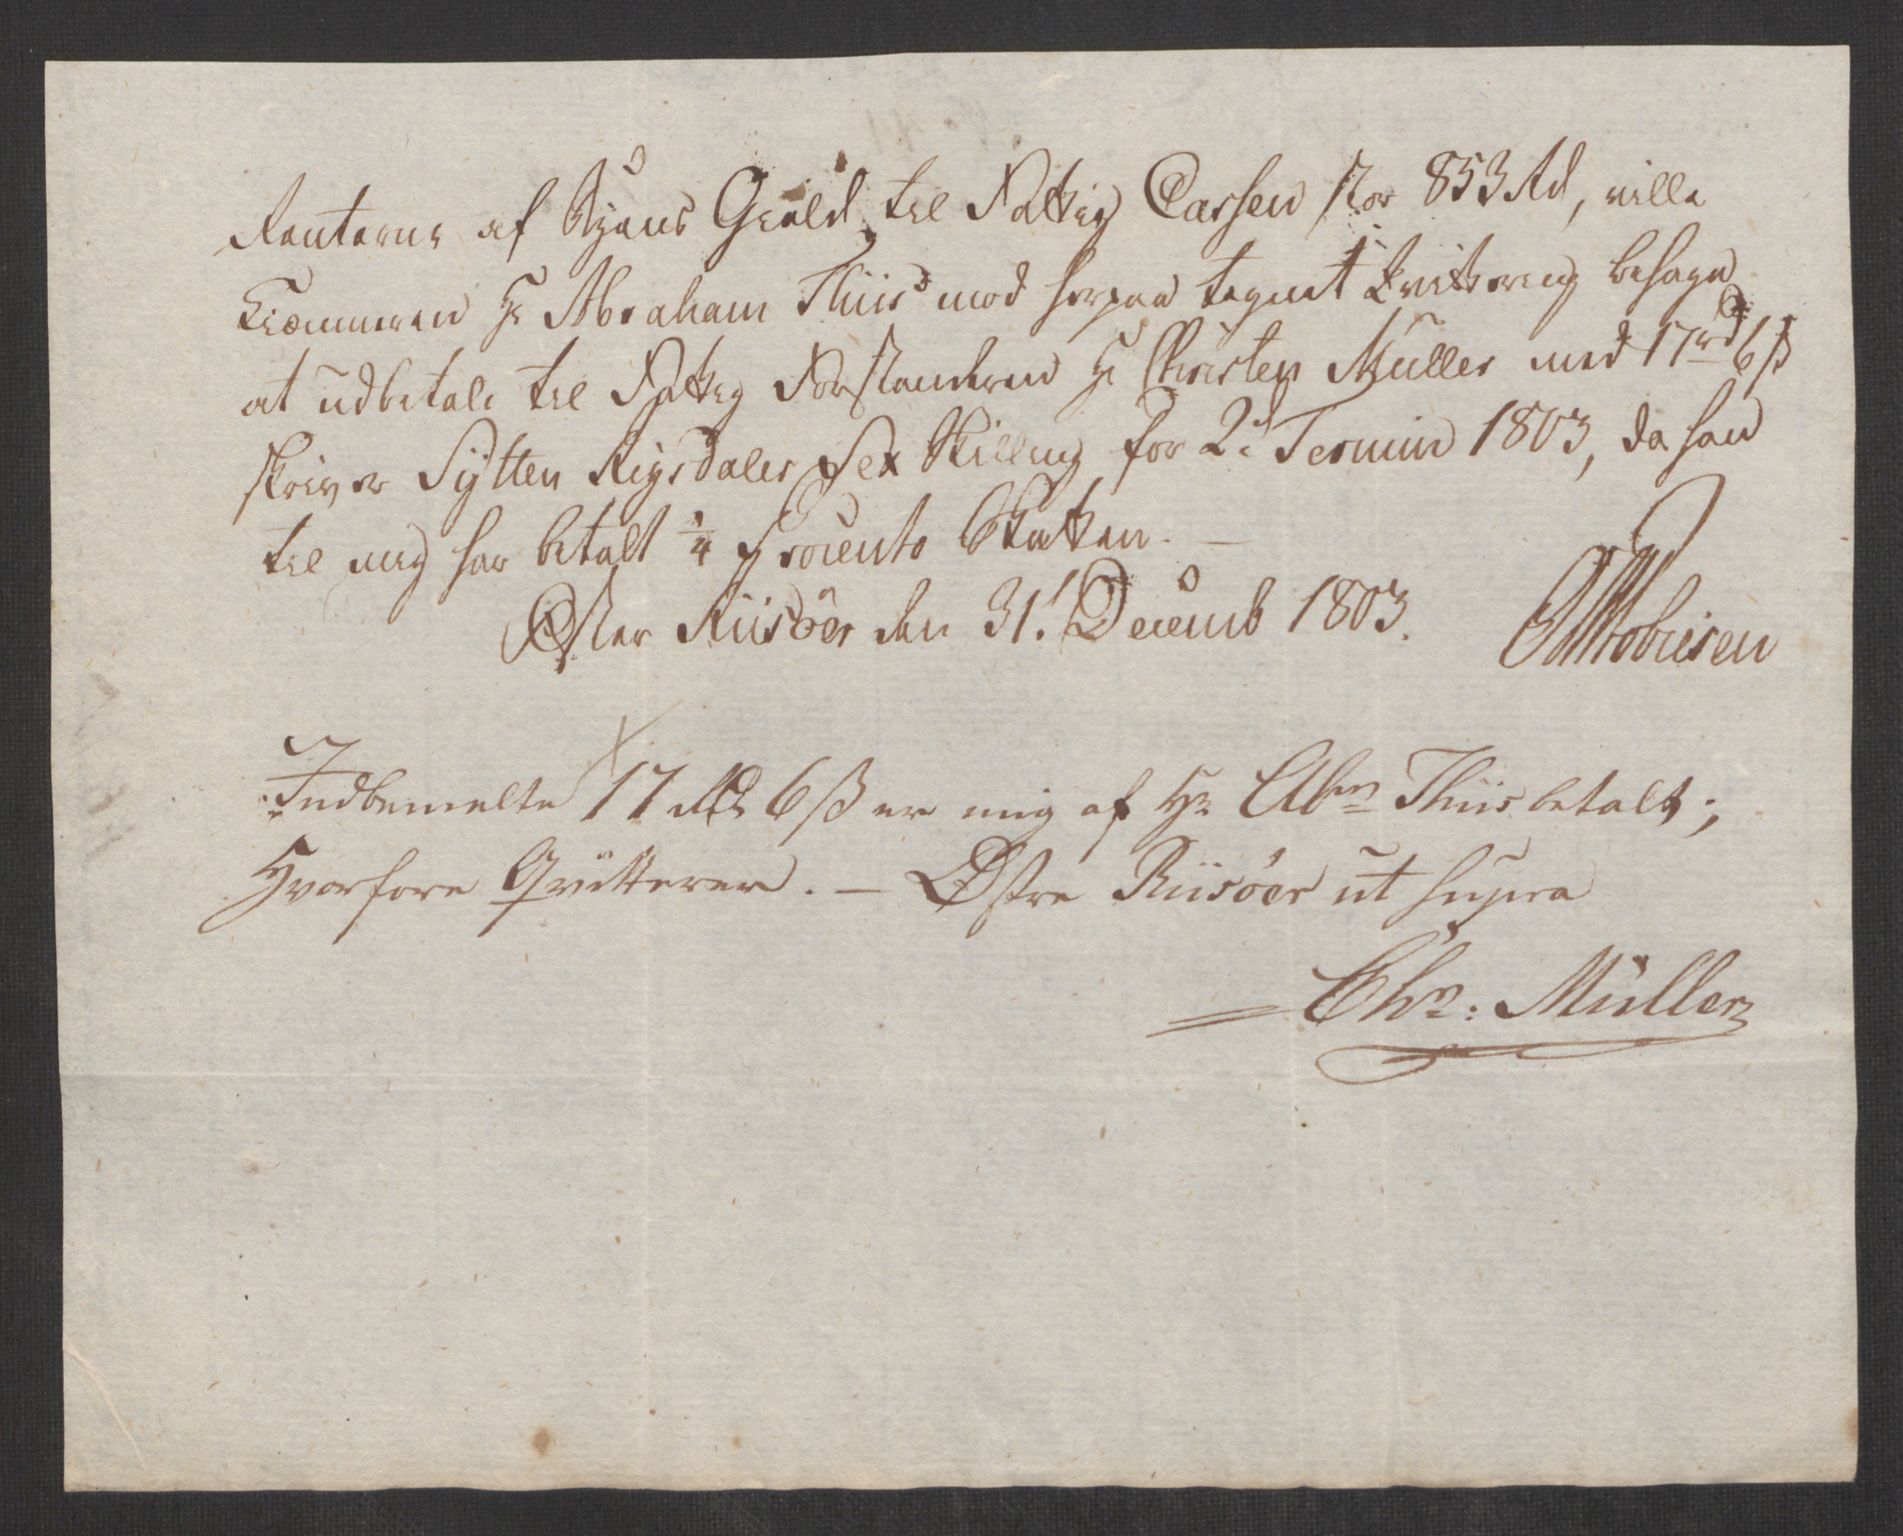 Renterne af Byens Gield til Fattig Cassen stor 853 Rd, ville
Kiæmneren Hr Abraham Thiis mod herpaa tegnet Kvittering behage
at udbetale til Fattig Forstanderen Hr Christen Müller med 17 rd 6 ß
skriver Sÿtten Rigsdaler Sex Skilling for 2d Termin 1803, da han
til mig har betalt 1/4 Procento Skatten. —
Øster Riisöer den 31t Decemb 1803.
Indbemelte 17 Rd 6 ß er mig af Hr Abm Thiis betalt;
Hvorfore Qvitterer. — Østre Riisöer ut supra
Chn: Müller